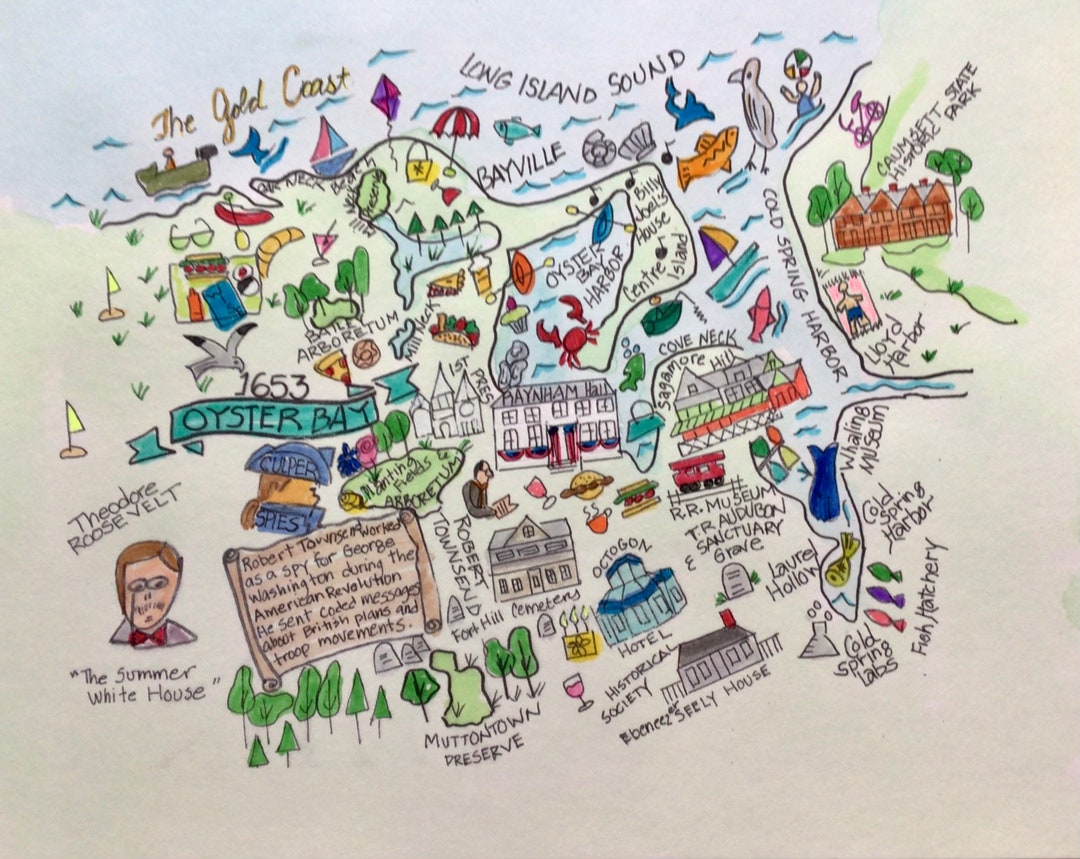 The Gold Coast
LONG ISLAND SOUND
BAYVILLE
CAUMSETT STATE
HISTORIC PARK
COLD SPRING HARBOR
Billy
Joel's
House
Centre
Island
OYSTER
BAY
HARBOR
Lloyd
Harbor
BAILEY
ARBORETUM
Mill Neck
1653
OYSTER BAY
1ST PRES
RAYNHAM Hall
COVE NECK
Sagamore Hill
Whaling
MUSEUM
CULPER
SPIES
Planting
Fields
ARBORETUM
Theodore
ROOSEVELT
"The Summer
White House"
Robert Townsend worked
as a spy for George
Washington during the
American Revolution
He sent coded messages
about British plans and
troop movements.
ROBERT
TOWNSEND
Fort Hill Cemetery
R.R. MUSEUM
T.R. AUDUBON
SANCTUARY
& Grave
OCTOGON
HOTEL
Laurel
Hollow
Cold
Spring
Harbor
Fish Hatchery
Cold
Spring
Labs
HISTORICAL
SOCIETY
Ebeneezer SEELY HOUSE
MUTTONTOWN
PRESERVE